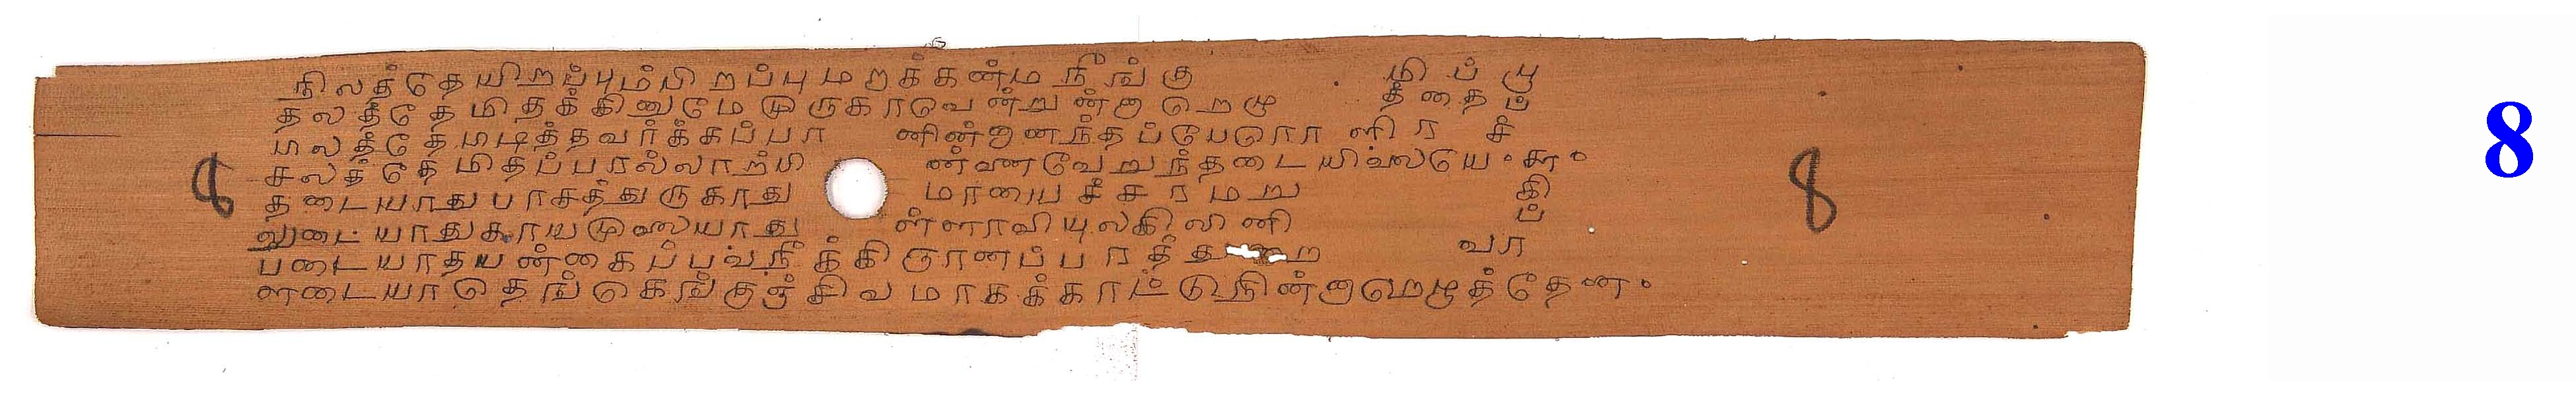 நிலத்தேயிறப்பும்பிறப்புமறக்கன்மநீங்கு மிப்பூ
தலத்தேமிதக்கினுமேமுருகாவென்றுன்றாறெழு த்தைப்
மலத்தேமடித்தவர்க்கப்பா னின்றனந்தப்பேரொளிர ச்
சலத்தேமிதப்பரல்லாற்பி ன்ண வேறுந்தடையில்லையே
தடையாதுபாசத்துருகாது மாயைச்சசரமறு கி
லுடையாதுகாயமுலையாது ள்ளாவியுலகிலினி ப்
படையாதயன்கைப்பவநீக்கிஞானப்பரத்து வா
ளடையாதெங்கெங்குஞ்சிவமாகக்காட்டுநின்றாறெழுத்தேன
8
8